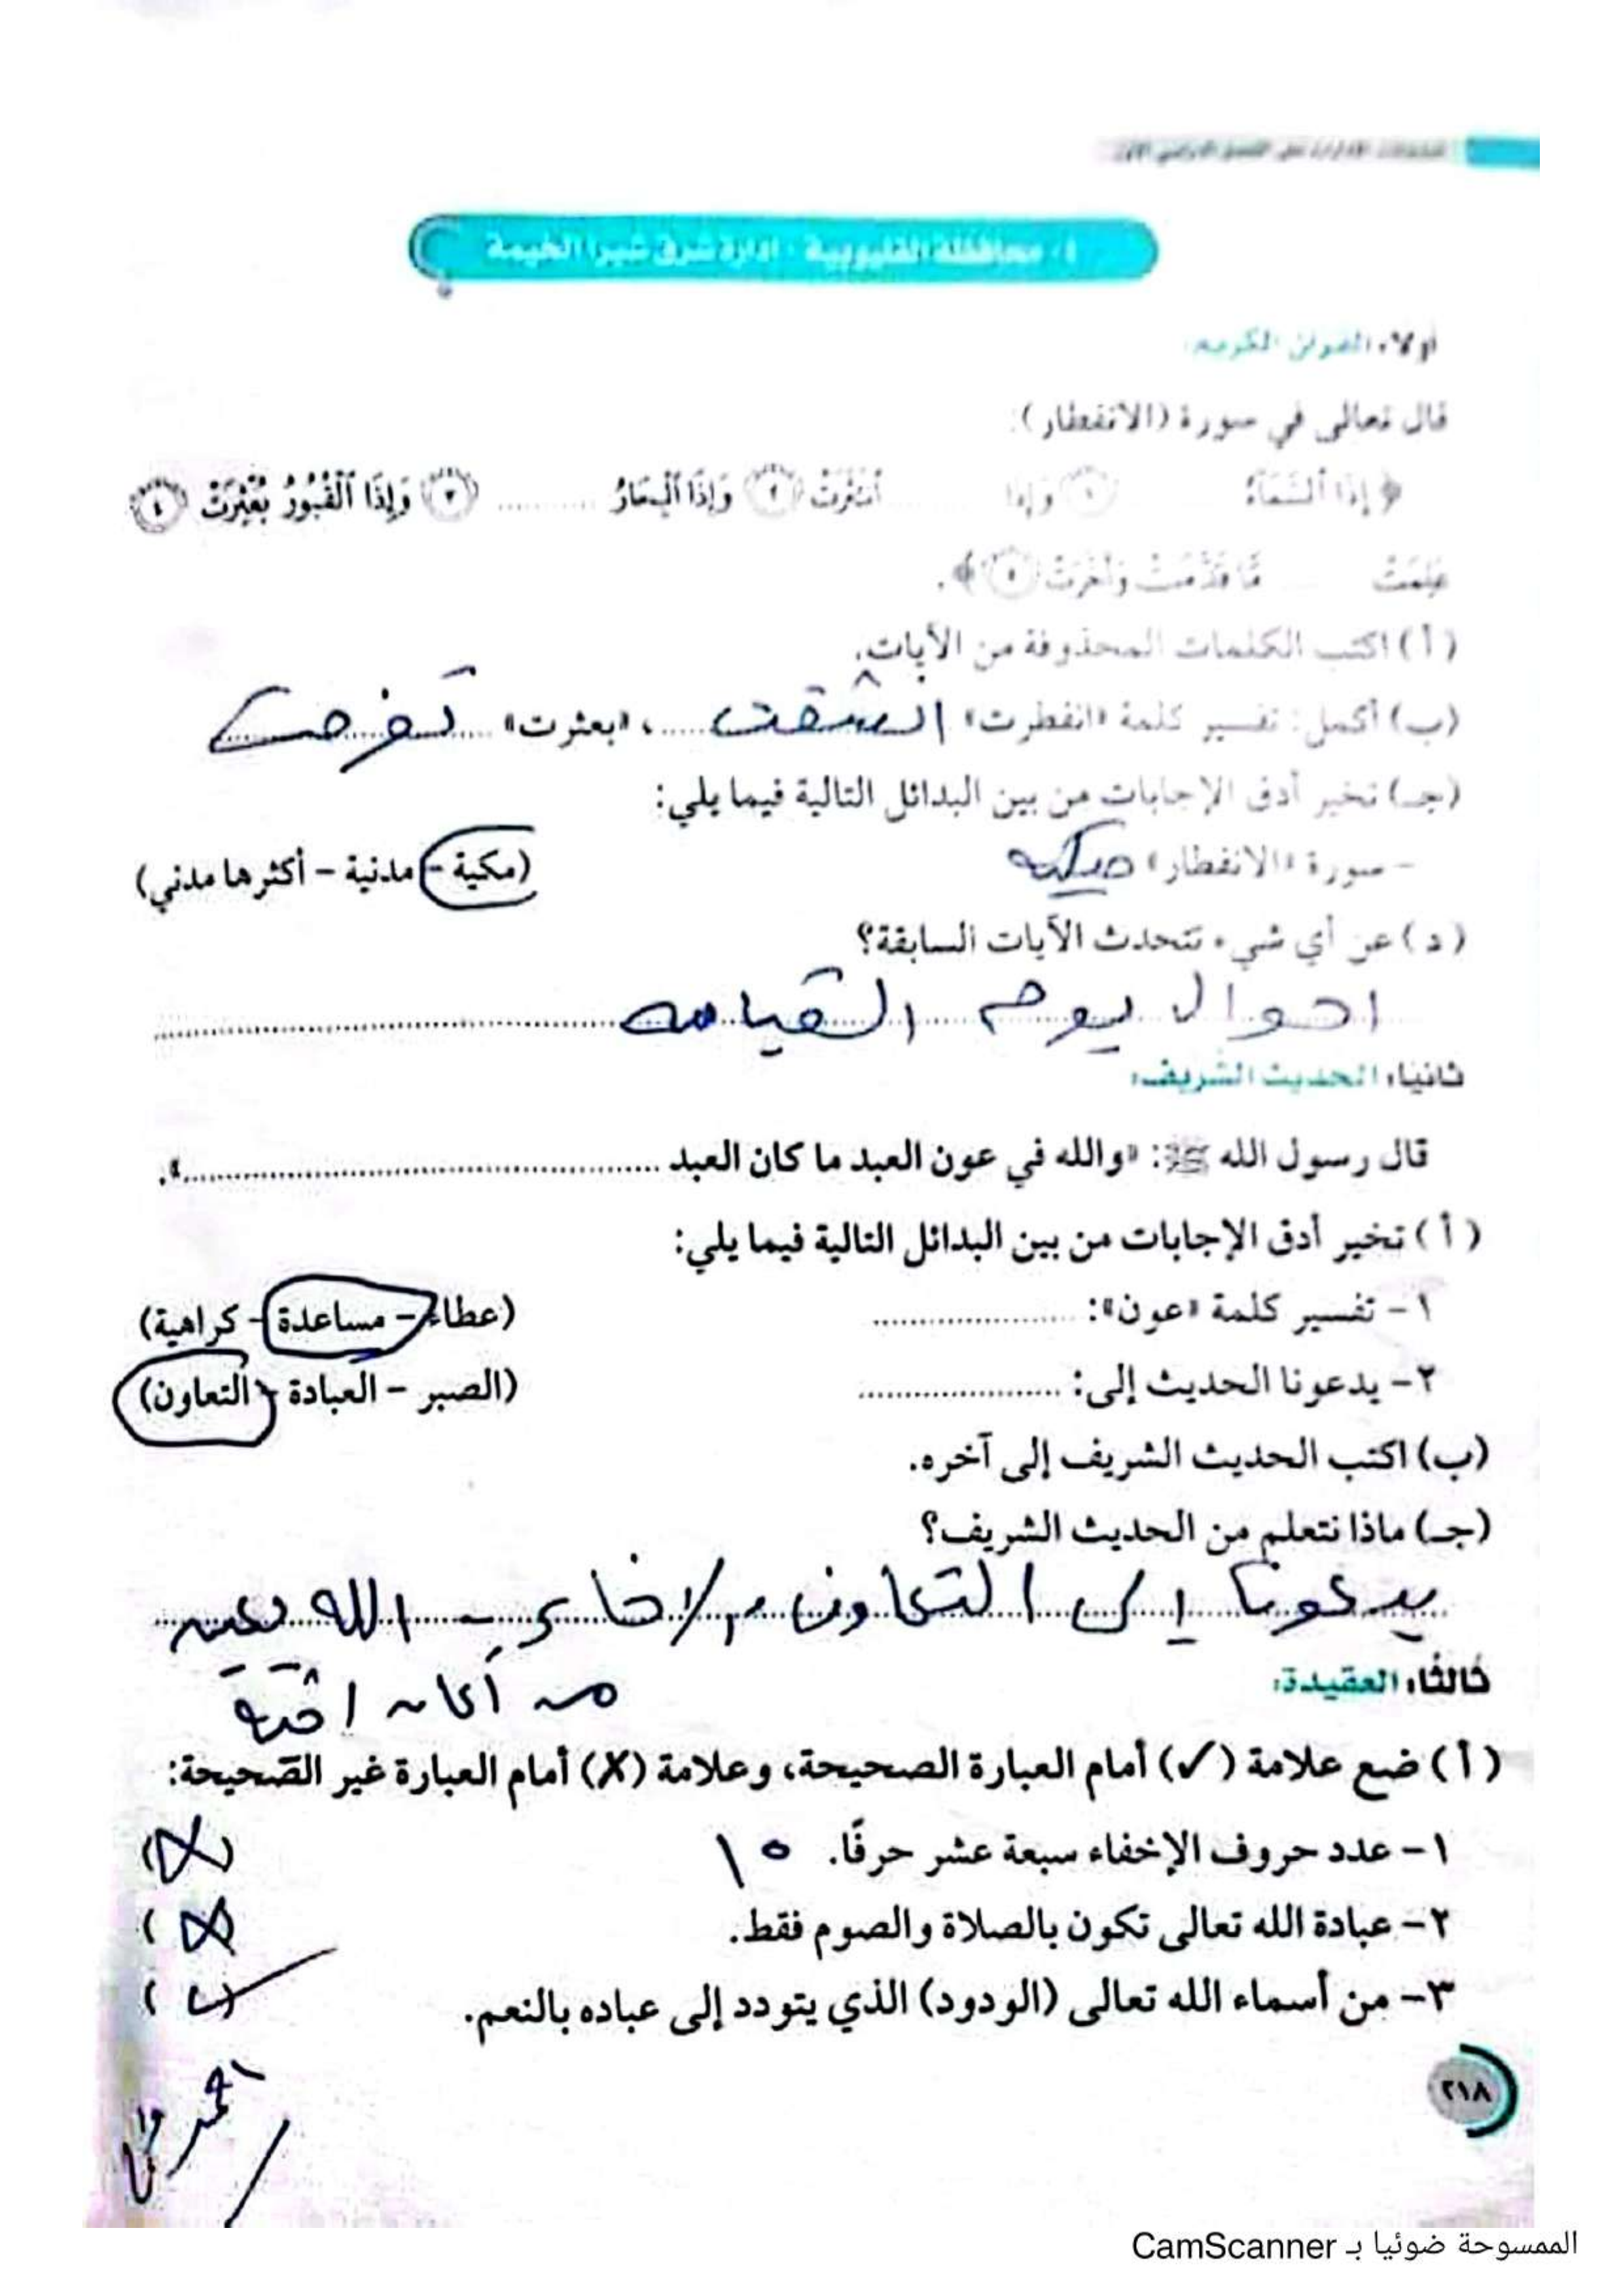 ١- محافظة القليوبية - إدارة شرق شبرا الخيمة
أولا: القرآن الكريم:
قال تعالى في سورة (الانفطار):
﴿ إِذَا ٱلسَّمَآءُ ١ وَإِذَا ......... ٱنتَثَرَتْ ٢ وَإِذَا ٱلْبِحَارُ ......... ٣ وَإِذَا ٱلْقُبُورُ بُعْثِرَتْ ٤
عَلِمَتْ ...... مَّا قَدَّمَتْ وَأَخَّرَتْ ٥ ﴾.
(أ) اكتب الكلمات المحذوفة من الآيات.
(ب) أكمل: تفسير كلمة «انفطرت» انشقت ......، «بعثرت»
(جـ) تخير أدق الإجابات من بين البدائل التالية فيما يلي:
- سورة «الانفطار» مكية (مكية - مدنية - أكثرها مدني)
(د) عن أي شيء تتحدث الآيات السابقة؟
اهوال يوم القيامه
ثانيا: الحديث الشريف:
قال رسول الله ﷺ: «والله في عون العبد ما كان العبد .........».
(أ) تخير أدق الإجابات من بين البدائل التالية فيما يلي:
١- تفسير كلمة «عون»: ......... (عطاء - مساعدة - كراهية)
٢- يدعونا الحديث إلى: ......... (الصبر - العبادة - التعاون)
(ب) اكتب الحديث الشريف إلى آخره.
(جـ) ماذا نتعلم من الحديث الشريف؟
يدعونا إلى التعاون والاخاء - الله يعين
ثالثًا: العقيدة:
من أعان اخيه
(أ) ضع علامة (✓) أمام العبارة الصحيحة، وعلامة (X) أمام العبارة غير الصحيحة:
١- عدد حروف الإخفاء سبعة عشر حرفًا. ١٥ (X)
٢- عبادة الله تعالى تكون بالصلاة والصوم فقط. (X)
٣- من أسماء الله تعالى (الودود) الذي يتودد إلى عباده بالنعم. (✓)
٢١٨
الممسوحة ضوئيا بـ CamScanner